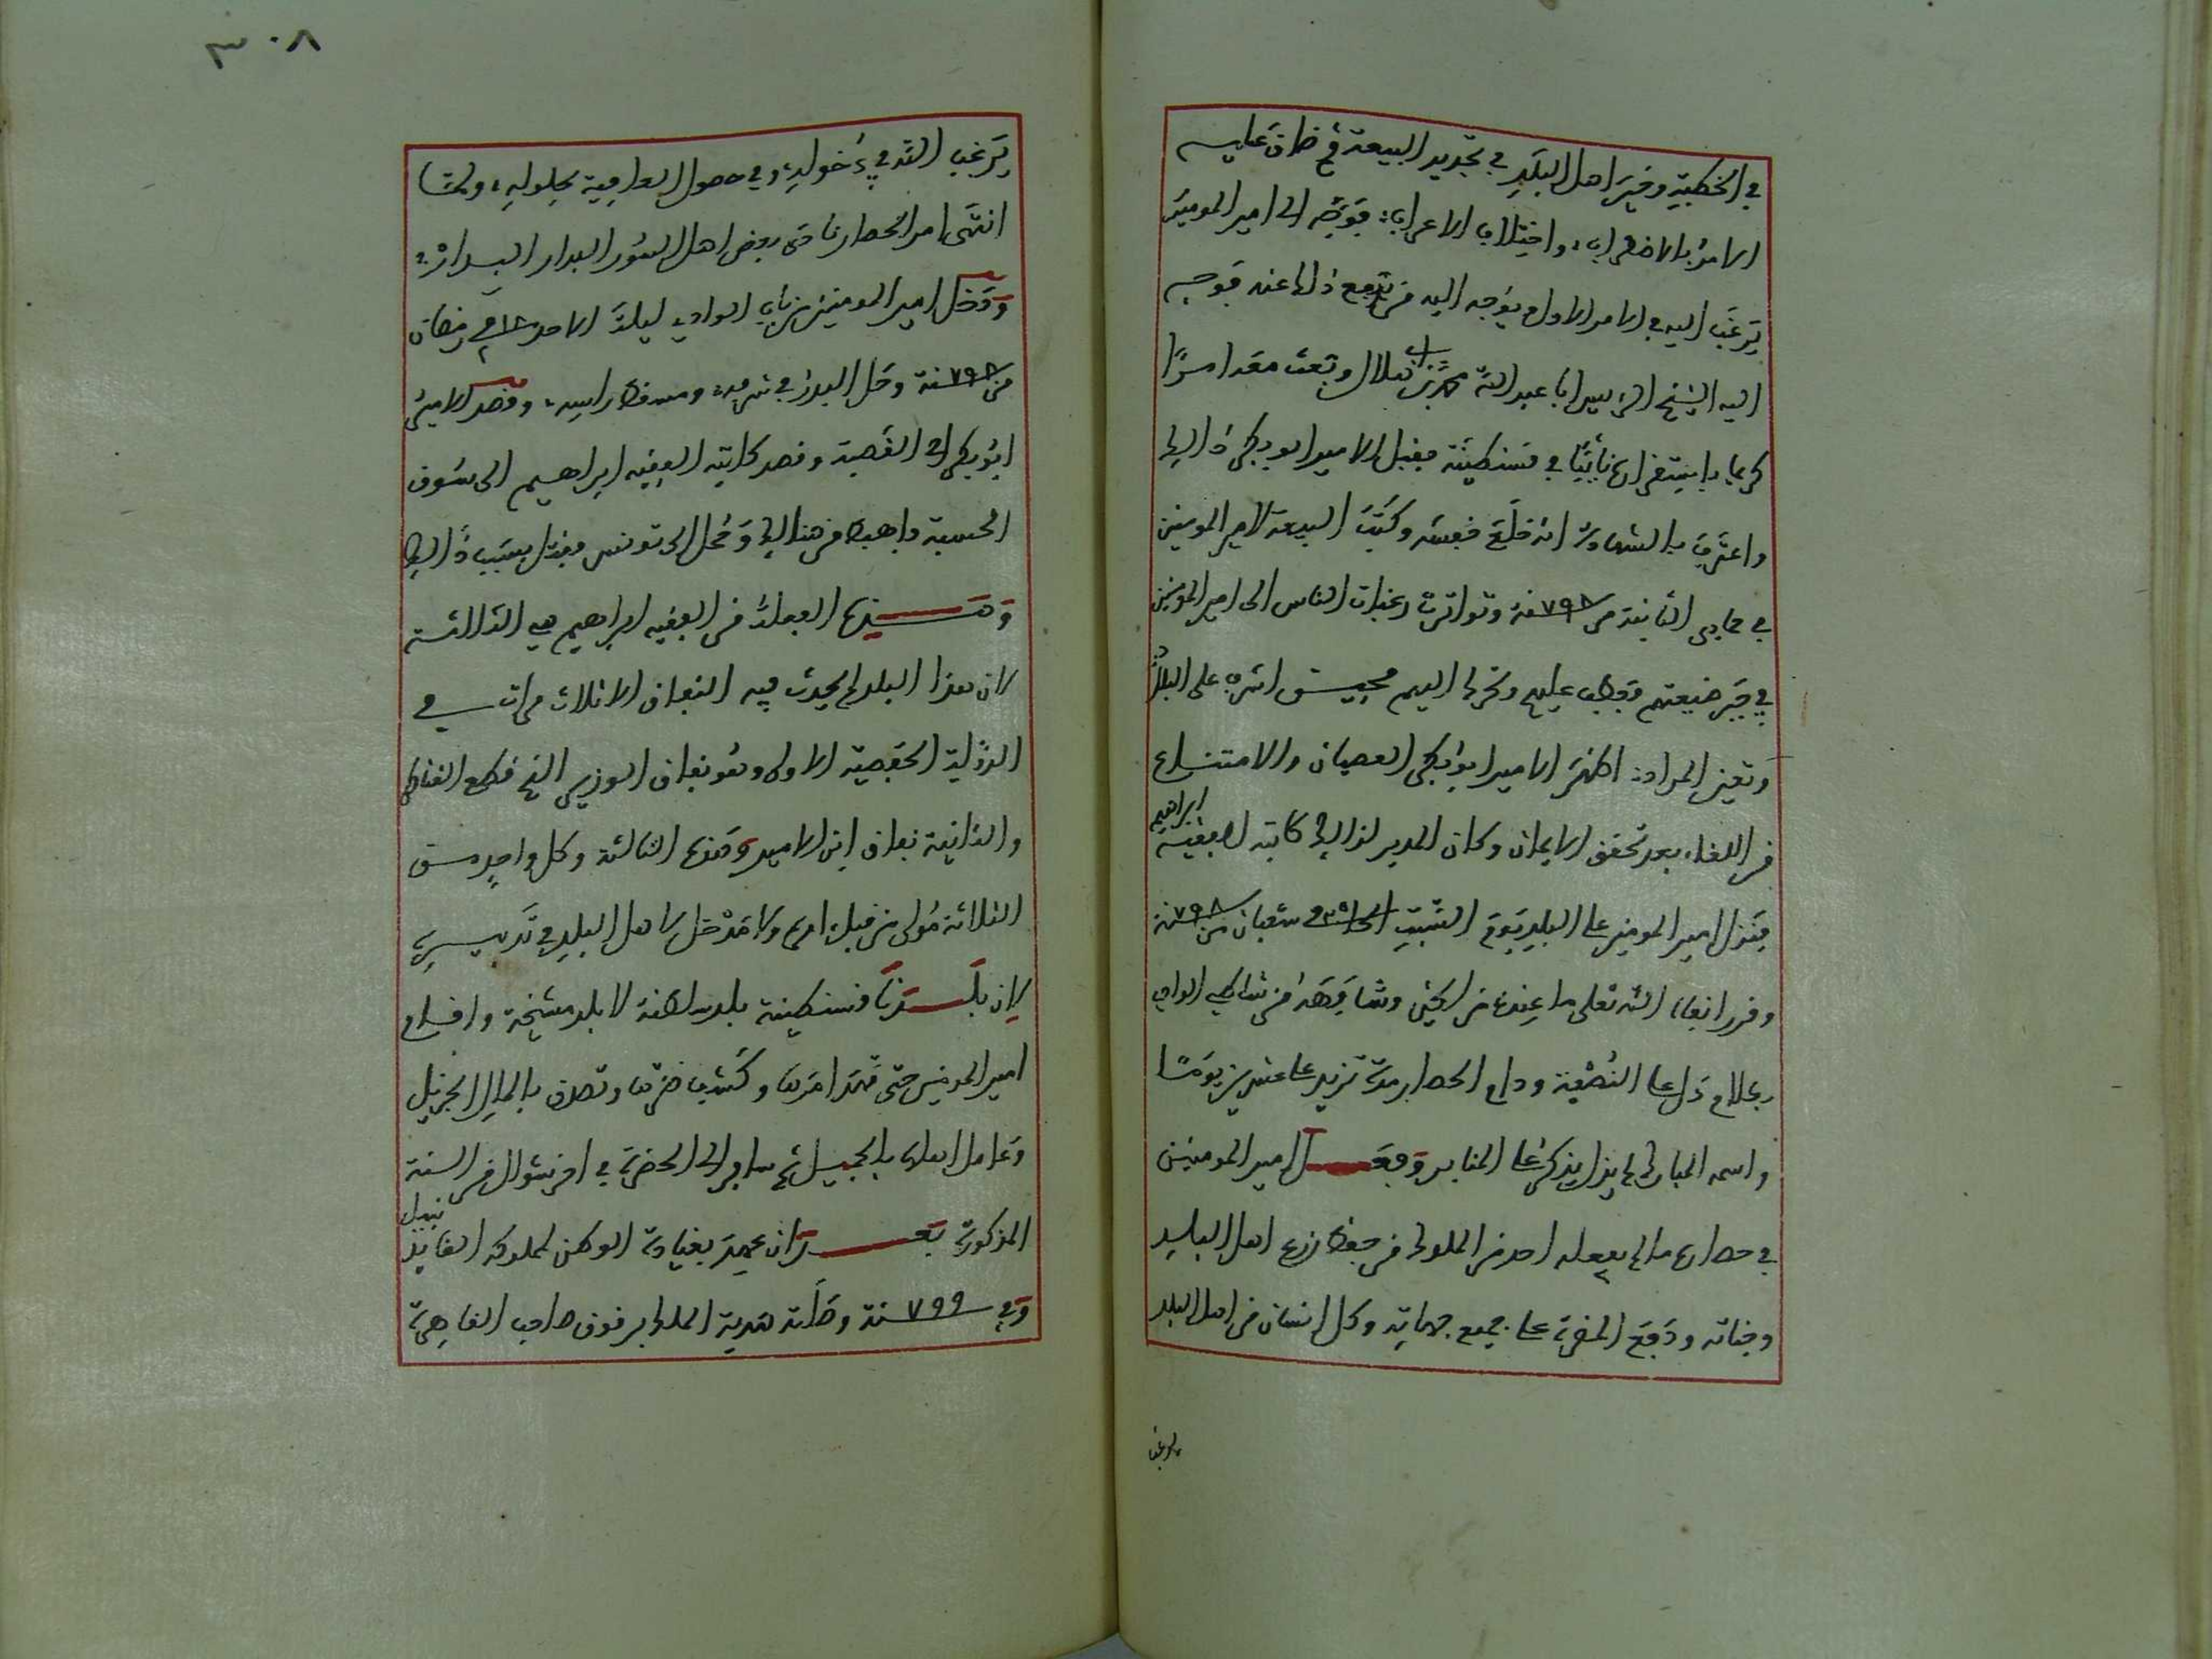 في الخطبة وخير اهل البلد في تجديد البيعة ثم ضاق عليه
الامر بالاضطراب، واختلاف الاعراب، فوجه الى امير المومنين
يرغب اليه في الامر الاول ويوجه اليه من يدفع ذلك عنه فوجه
اليه الشيخ الرييس ابا عبد الله محمد بن ابي هلال وبعث معه امرا
كريما باستقراره نائبا في قسنطينة فقبل الامير ابو بكر ذالك
واعترف بالشهادة انه خلع نفسه وكتب البيعة لامير المومنين
في جمادى الثانية من سنة ٧٩٨ وتواترت رغبات الناس الى امير المومنين
في جبر ضيعتهم فعطف عليهم وتحرك اليهم فحين اشرف على البلد
وتعين المراد، اظهر الامير ابو بكر العصيان والامتناع
من اللقاء بعد تحقق الايمان وكان المدبر لذالك كاتبه الفقيه ابراهيم
فنزل امير المومنين على البلد يوم السبت شعبان من سنة ٧٩٨
وقرر ابقاه الله تعلى ما عنده من الخير وشافهه من شاطئ الوادي
بكلام دل على النصيحة ودام الحصار مدة تزيد على عشرين يوما
واسمه المبارك لم يزل يذكر على المنابر وفعل امير المومنين
في حصاره ما لم يفعله احد من الملوك من حفظ زرع اهل البلد
وجناته ودفع المضرة على جميع جهاته وكل انسان من اهل البلد
يرغب
٣٠٨
يرغب الله في دخوله، وفي حصول العافية بحلوله، ولما
انتهى امر الحصار نادى بعض اهل السور البدار البدار،
ودخل امير المومنين من باب الوادي ليلة الاحد رمضان
من سنة ٧٩٨ وحل البدر في شرفه، ومسقط راسه، وقصد الامير
ابو بكر الى القصبة وقصد كاتبه الفقيه ابراهيم الى سوق
الحسبة فاهبط من هنالك وحمل الى تونس فقتل بسبب ذالك
وهذه الفعلة من الفقيه ابراهيم هي الثالثة
لان هذا البلد لم يحدث فيه النفاق الا ثلاث مرات في
الدولة الحفصية الاولى وهو نفاق الوزير الذي قطع القناطر
والثانية نفاق ابن الامير وهذه الثالثة وكل واحد من
الثلاثة مولى من قبل امره ولا مدخل لاهل البلد في تدبيره
لان بلدنا قسنطينة بلد سلطنة لا بلد مشيخة واقام
امير المومنين حتى مهد امرها وكشف ضرها وتصدق بالمال الجزيل
وعامل اهلها بالجميل ثم سافر الى الحضرة في اخر شوال من السنة
المذكورة بعد ان عهد بقيادة الوطن لمملوكه القايد نبيل
وفي سنة ٧٩٩ وصلته هدية الملك برقوق صاحب القاهرة